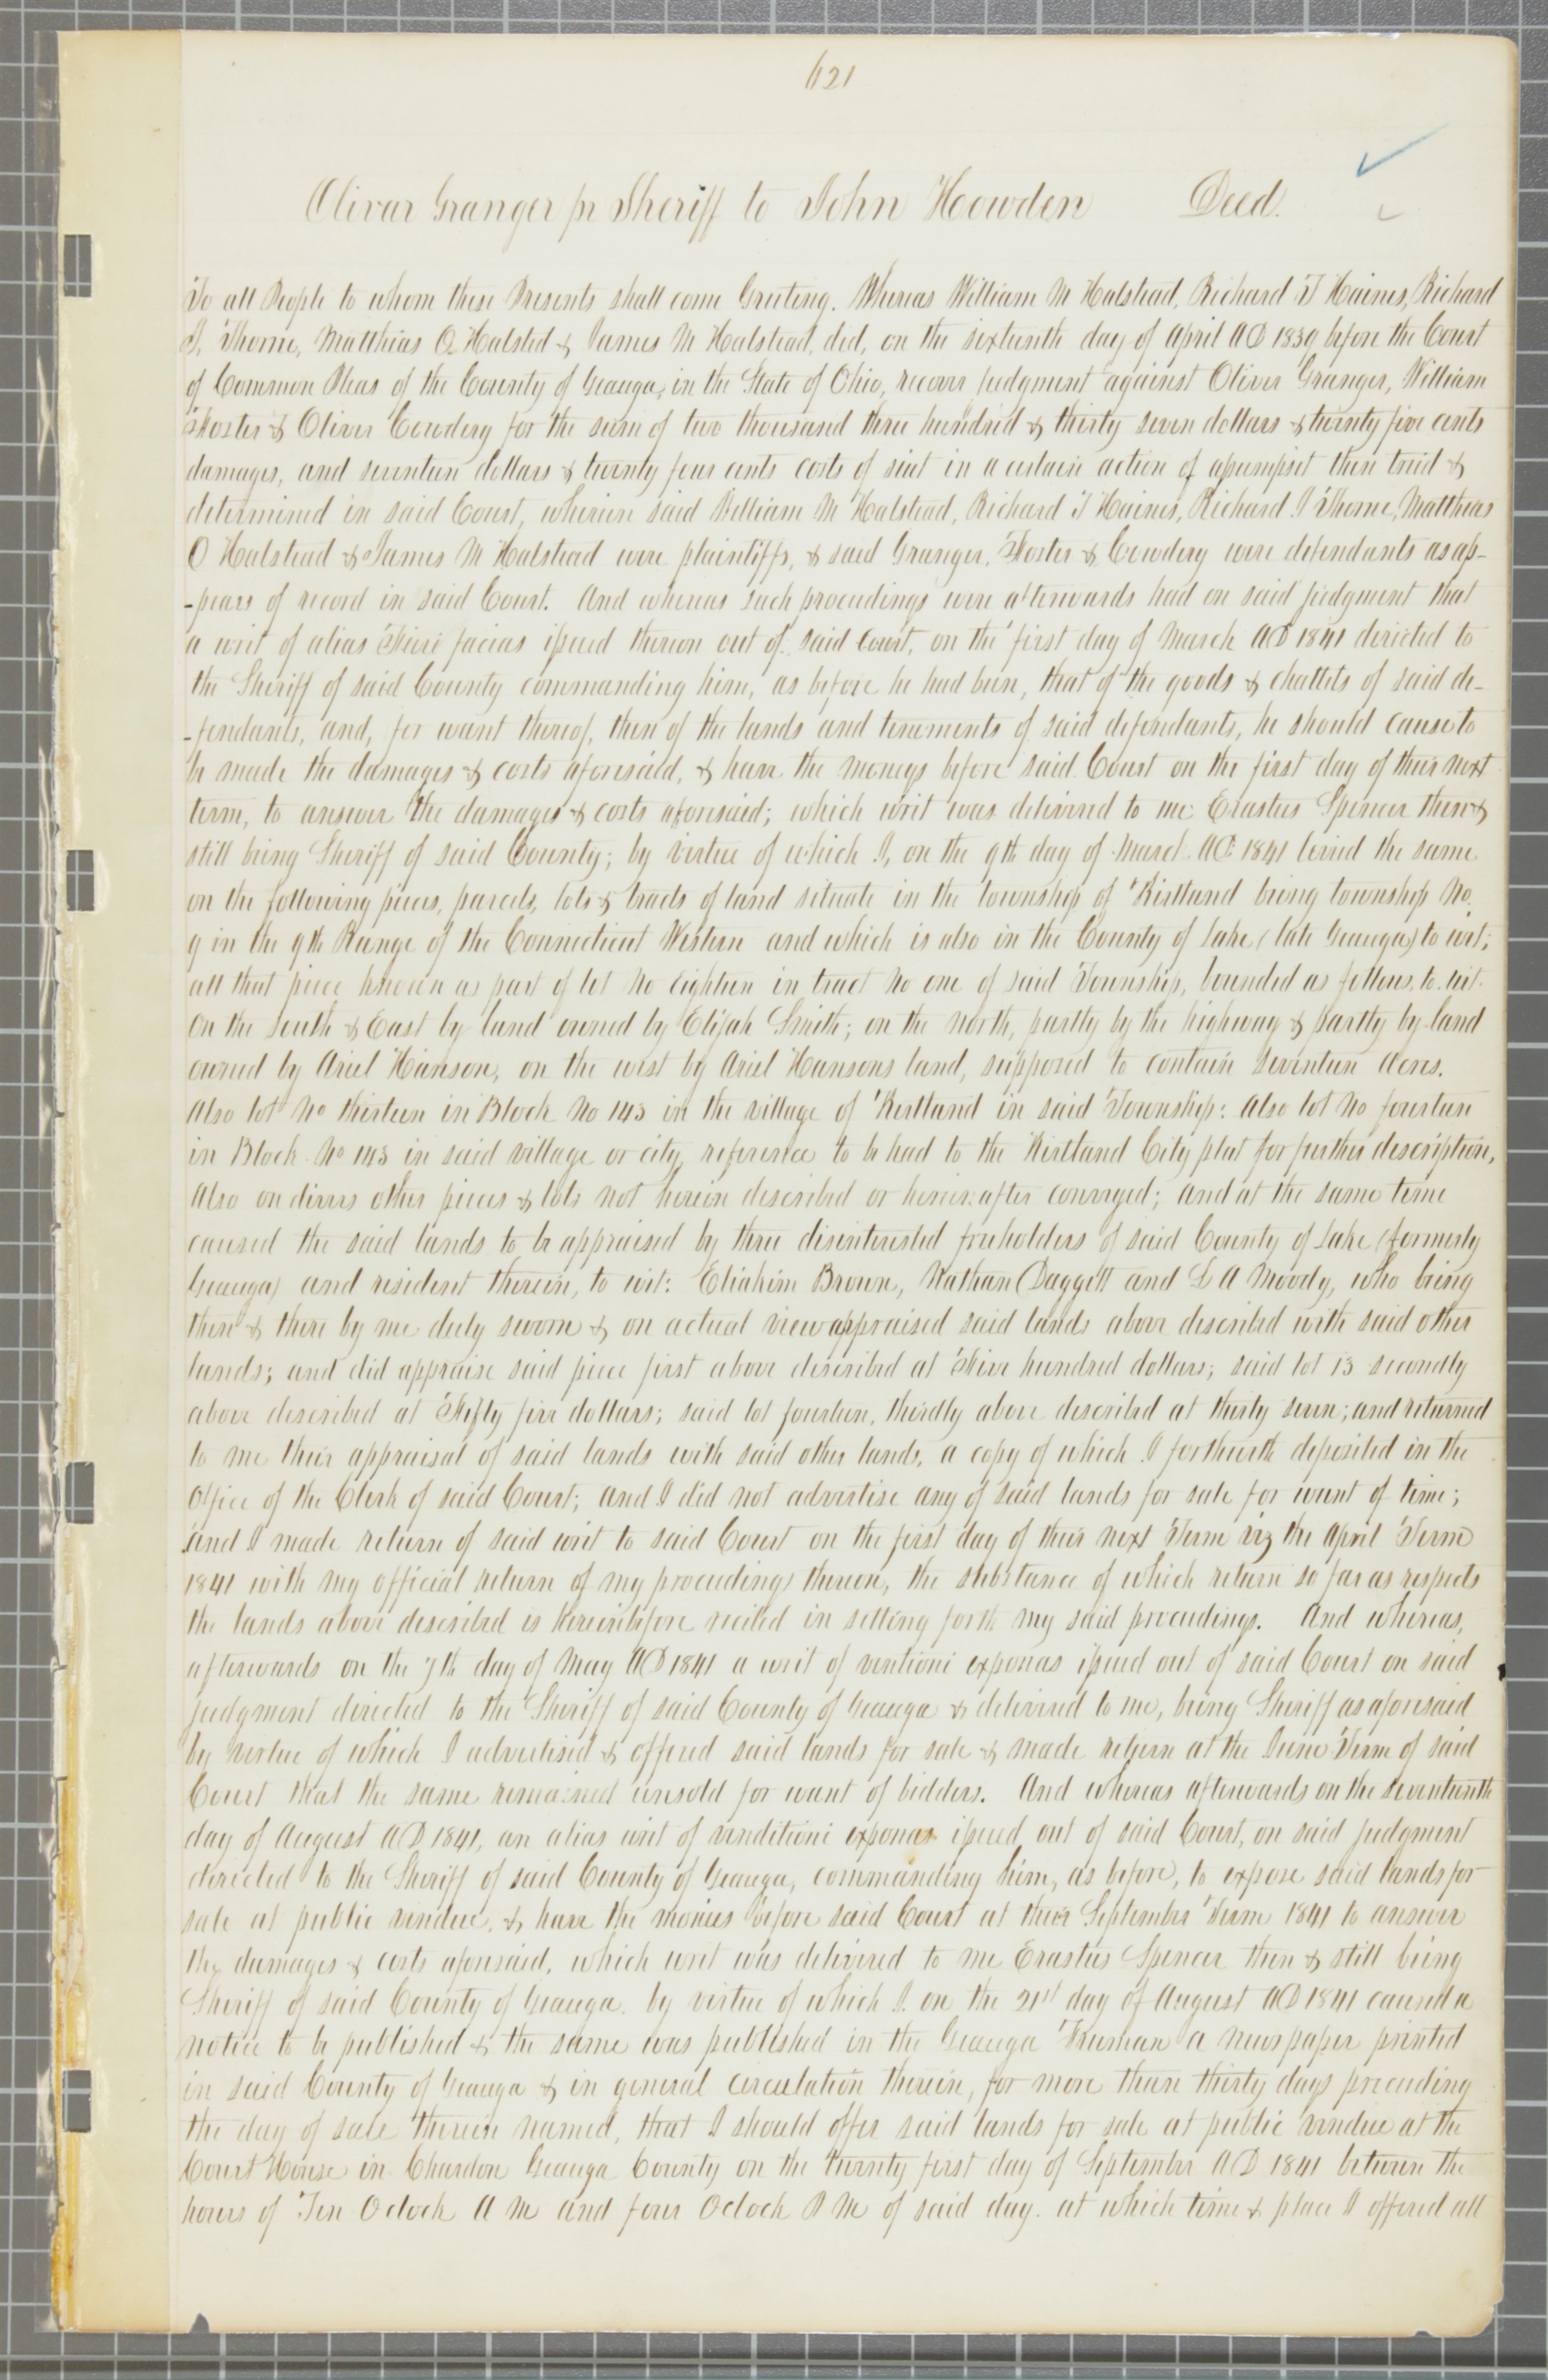 621
Olivar Granger pr Sheriff to John Howden Deed.
To all People to whom these Presents shall come Greeting. Whereas William M Halstead, Richard T Haines, Richard
I, Thorne, Matthias O Halsted & James M Halstead, did, on the sixteenth day of April AD 1839 before the Court
of Common Pleas of the County of Geauga, in the State of Ohio, recover judgment against Oliver Granger, William
Foster & Oliver Cowdery for the sum of two thousand three hundred & thirty seven dollars & twenty five cents
damages, and seventeen dollars & twenty four cents costs of suit in a certain action of assumpsit then tried &
determined in said Court, wherein said William M Halstead, Richard T Haines, Richard I Thorne, Matthias
O Halstead & James M Halstead were plaintiffs, & said Granger, Foster & Cowdery were defendants as ap-
-pears of record in said Court. And whereas such proceedings were afterwards had on said judgment that
a writ of alias Fieri facias issued thereon out of said Court, on the first day of March AD 1841 directed to
the Sheriff of said County commanding him, as before he had been, that of the goods & chattels of said de-
-fendants, and, for want thereof, then of the lands and tenements of said defendants, he should cause to
be made the damages & costs aforesaid, & have the moneys before said Court on the first day of their next
term, to answer the damages & costs aforesaid; which writ was delivered to me Erastus Spencer then &
still being Sheriff of said County; by virtue of which I, on the 9th day of March AD 1841 levied the same
on the following pieces, parcels, lots & tracts of land situate in the township of Kirtland being township No.
9 in the 9th Range of the Connecticut Western and which is also in the County of Lake (late Geauga) to wit;
all that piece known as part of lot No Eighteen in tract No one of said Township, bounded as follows, to wit.
On the South & East by land owned by Elijah Smith; on the north, partly by the highway & partly by land
owned by Ariel Hanson, on the west by Ariel Hansons land, supposed to contain seventeen Acres.
Also lot No thirteen in Block No 143 in the village of Kirtland in said Township: Also lot No fourteen
in Block No 143 in said village or city, reference to be had to the Kirtland City plat for further description,
Also on divers other pieces & lots not herein described or hereinafter conveyed; and at the same time
caused the said lands to be appraised by three disinterested freeholders of said County of Lake (formerly
Geauga) and resident therein, to wit: Eliakim Brown, Nathan Daggett and L A Moody, who being
then & there by me duly sworn & on actual view appraised said lands above described with said other
lands; and did appraise said piece first above described at Five hundred dollars; said lot 13 secondly
above described at Fifty five dollars; said lot fourteen, thirdly above described at thirty seven; and returned
to me their appraisal of said lands with said other lands, a copy of which I forthwith deposited in the
Office of the Clerk of said Court; and I did not advertise any of said lands for sale for want of time;
and I made return of said writ to said Court on the first day of their next Term viz the April Term
1841 with my official return of my proceedings thereon, the substance of which return so far as respects
the lands above described is hereinbefore recited in setting forth my said proceedings. And whereas,
afterwards on the 7th day of May AD 1841 a writ of ventioni exponas issued out of said Court on said
judgment directed to the Sheriff of said County of Geauga & delivered to me, being Sheriff as aforesaid
by virtue of which I advertised & offered said lands for sale & made return at the June Term of said
Court that the same remained unsold for want of bidders. And whereas afterwards on the seventeenth
day of August AD 1841, an alias writ of venditioni exponas issued out of said Court, on said judgment
directed to the Sheriff of said County of Geauga, commanding him, as before, to expose said lands for
sale at public vendue, & have the monies before said Court at their September Term 1841 to answer
the damages & costs aforesaid, which writ was delivered to me Erastus Spencer then & still being
Sheriff of said County of Geauga. by virtue of which I. on the 21st day of August AD 1841 caused a
notice to be published & the same was published in the Geauga Freeman a newspaper printed
in said County of Geauga & in general circulation therein, for more than thirty days preceeding
the day of sale therein named, that I should offer said lands for sale at public vendue at the
Court House in Chardon Geauga County on the twenty first day of September AD 1841 between the
hours of Ten Oclock A M and four Oclock P M of said day. at which time & place I offered all